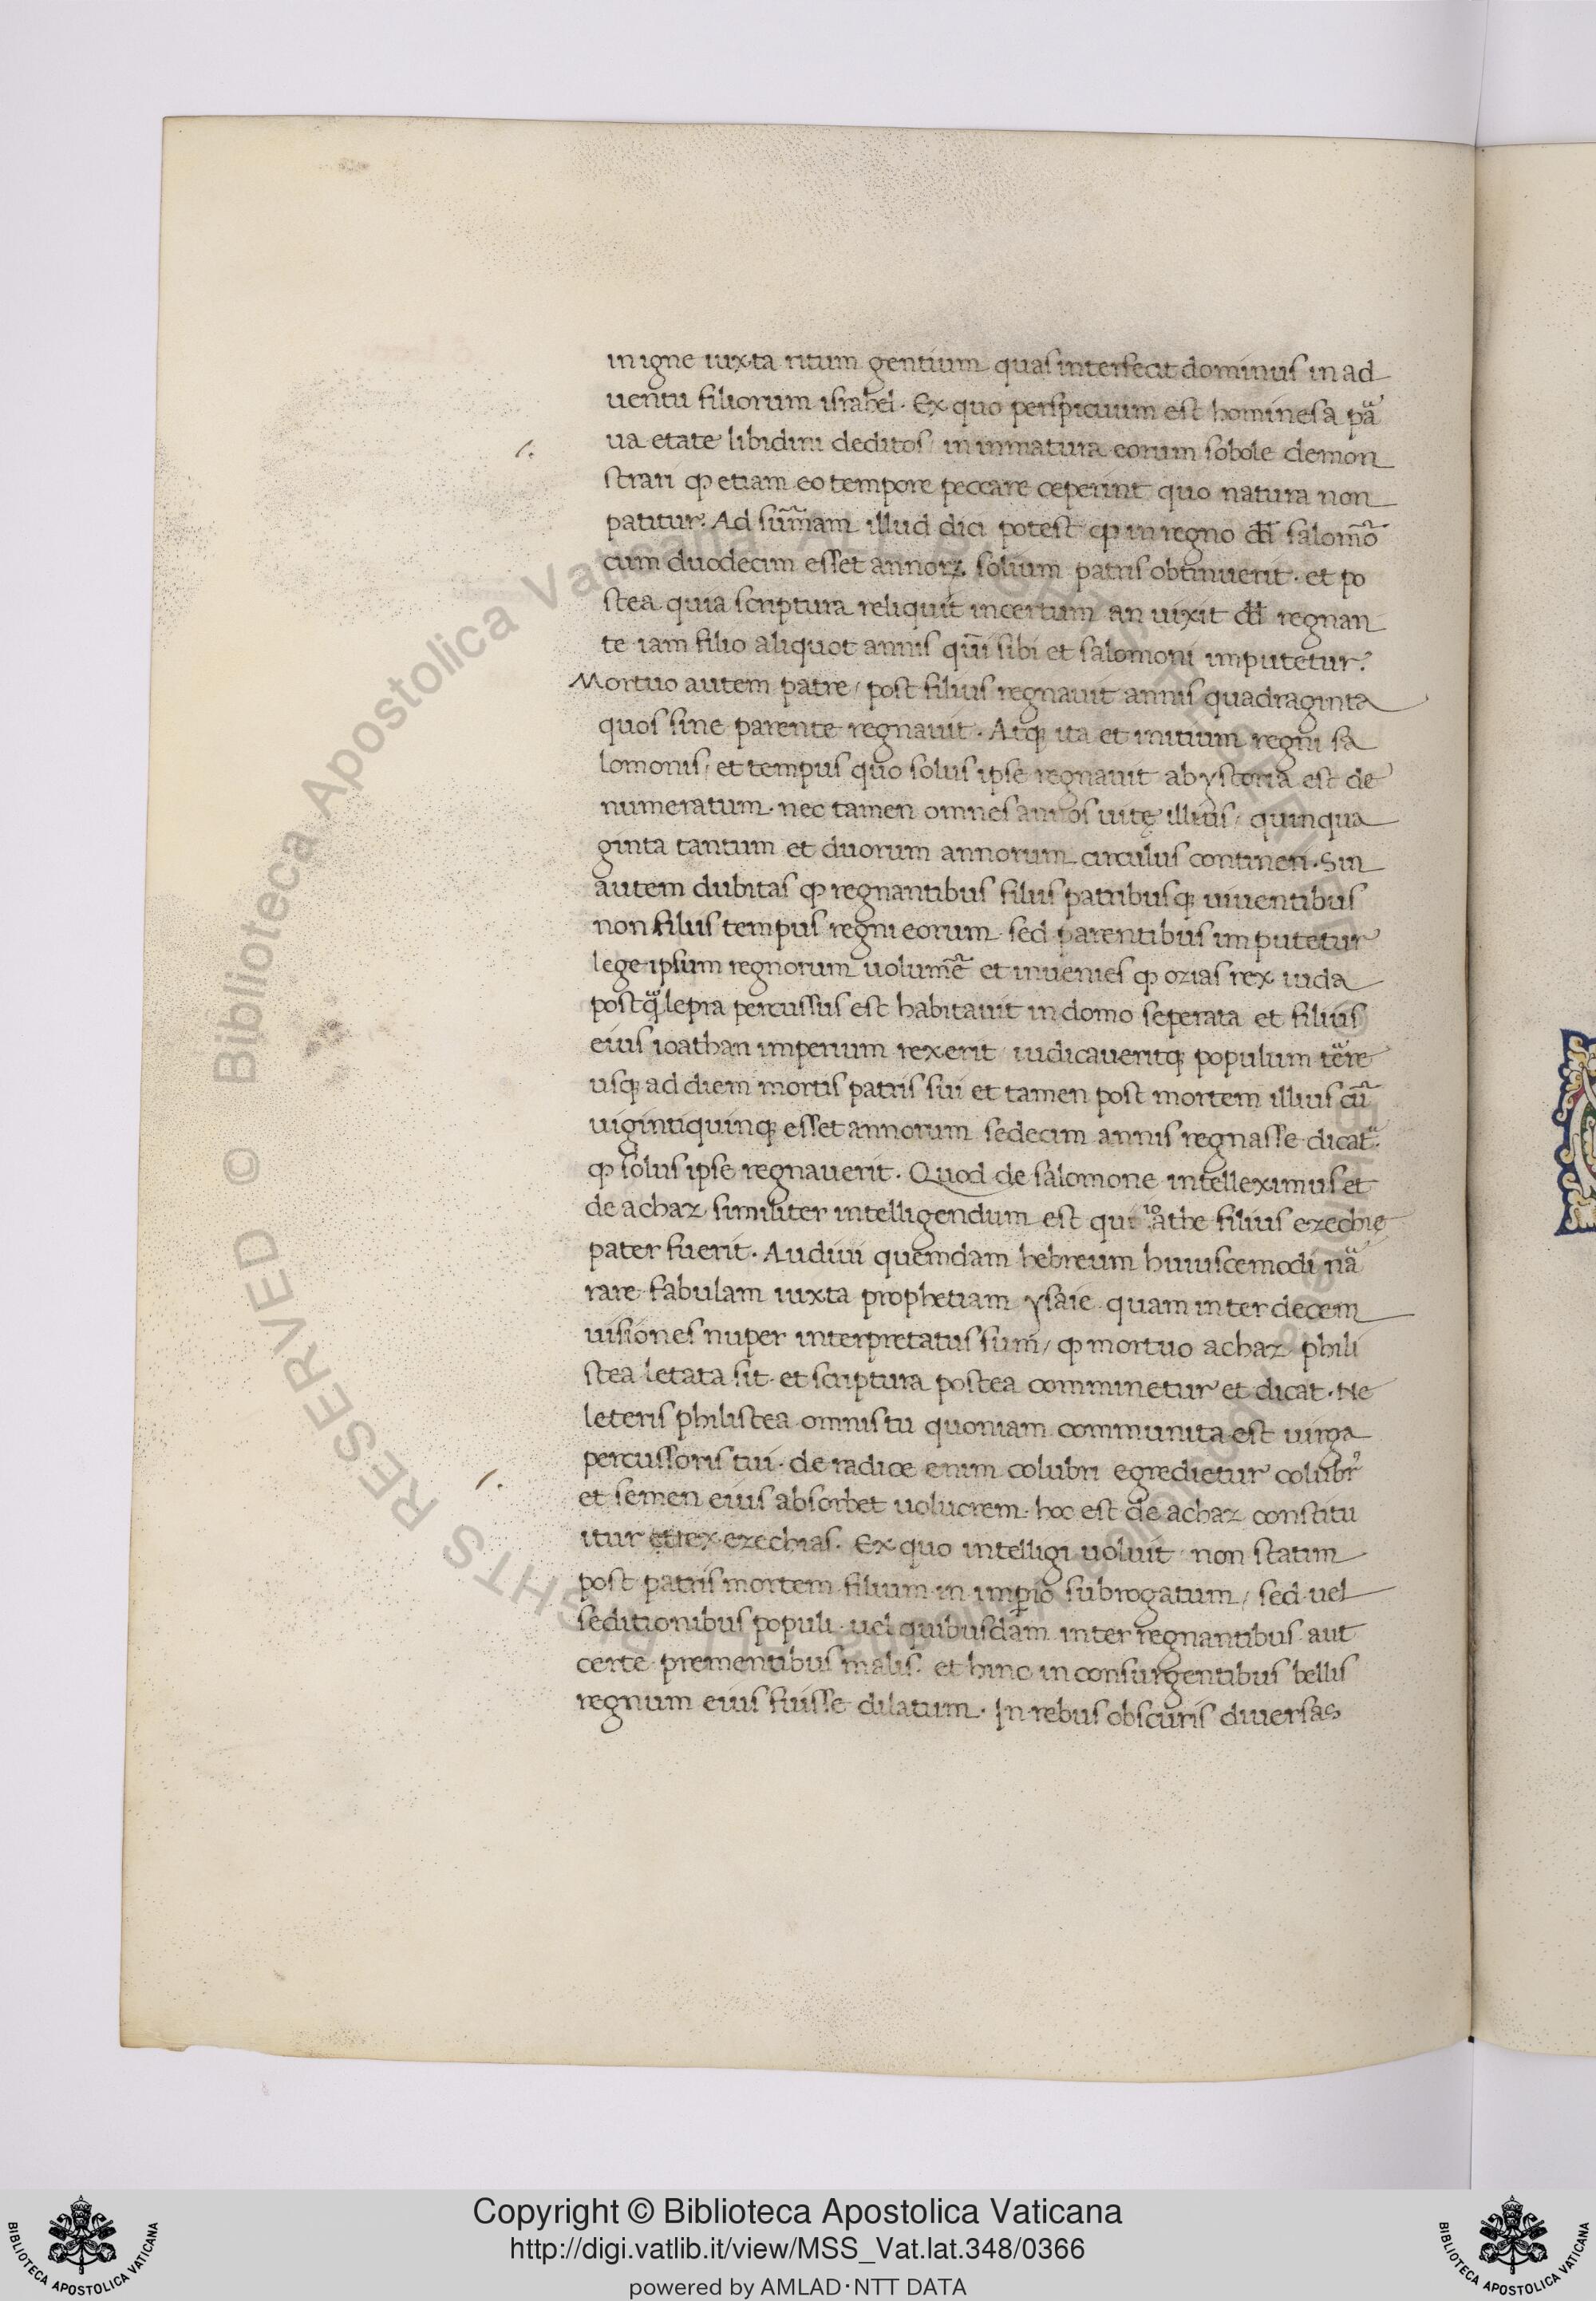 in igne iuxta ritum gentium quas interfecit dominus in ad
uentu filiorum israhel. Ex quo perspicuum est homines a paᷓ
ua etate libidini deditos / in inmatura eorum sobole demon
strari ꝙ etiam eo tempore peccare ceperint quo natura non
patitur. Ad sum̄am illud dici potest ꝙ in regno dd̄ salomō
cum duodecim esset annorꝝ solium patris obtinuerit. et po
stea quia scriptura reliquit incertum an uixit dd̄ regnan
te iam filio aliquot annis quiᷓ sibi et salomoni imputetur.
Mortuo autem patre / post filius regnauit annis quadraginta
quos sine parente regnauit. Atqꝫ ita et initium regni sa
lomonis / et tempus quo solus ipse regnauit ab ystoria est de
numeratum. nec tamen omnes annos uitę illius / quinqua
ginta tantum et duorum annorum circulus contineri. Sin
autem dubitas ꝙ regnantibus filiis patribusqꝫ uiuentibus
non filiis tempus regni eorum sed parentibus imputetur
lege ipsum regnorum uolumē et inuenies ꝙ ozias rex iuda
postqᷓ lepra percussus est habitauit in domo seperata et filius
eius ioathan imperium rexerit / iudicaueritqꝫ populum teᷓre
usqꝫ ad diem mortis patris sui et tamen post mortem illius cū
uigintiquinqꝫ esset annorum sedecim annis regnasse dicat᷑
ꝙ solus ipse regnauerit. Quod de salomone intelleximus et
de achaz similiter intelligendum est qui ioathe filius ezechię
pater fuerit. Audiui quemdam hebreum huiuscemodi naᷓ
rare fabulam iuxta prophetiam ysaie quam inter decem
uisiones nuper interpretatus sum / ꝙ mortuo achaz phili
stea letata sit. et scriptura postea comminetur et dicat. Ne
leteris philistea omnis tu quoniam communita est uirga
percussoris tui. de radice enim colubri egredietur colubr᾽
et semen eius absorbet uolucrem. hoc est de achaz constitu
itur et rex ezechias. Ex quo intelligi uoluit non statim
post patris mortem filium in imꝑio subrogatum / sed uel
seditionibus populi uel quibusdam inter regnantibus aut
certe prementibus malis. et hinc inconsurgentibus bellis
regnum eius fuisse dilatum. In rebus obscuris diuersas
Copyright © Biblioteca Apostolica Vaticana
http://digi.vatlib.it/view/MSS_Vat.lat.348/0366
powered by AMLAD·NTT DATA
BIBLIOTECA APOSTOLICA VATICANA
BIBLIOTECA APOSTOLICA VATICANA